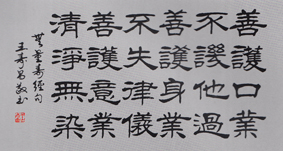 善護口業
不譏他過
善護身業
不失律儀
善護意業
清淨無染
無量壽經句
王壽昌敬書